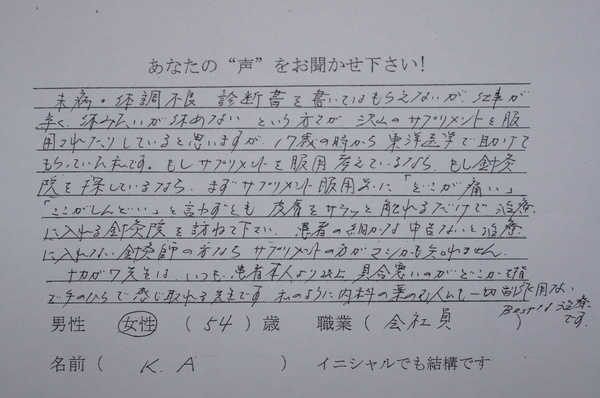 あなたの“声”をお聞かせ下さい!
未病・体調不良 診断書を書いてはもらえないが、仕事が
辛く、休みたいが休めない という方が 沢山のサプリメントを服
用されたりしていると思いますが、17歳の時から東洋医学で助けて
もらっていた私です。もしサプリメントを服用 考えているなら、もし針灸
院を探しているなら、まずサプリメント服用前に「どこが痛い」
「ここがしんどい」と言わずとも 皮膚をサラッと触れるだけで治療
に入れる針灸院を訪ねて下さい。患者の細かな申告ないと治療
に入れない針灸師の方なら サプリメントの方がマシかも知れません。
ナカガワ先生は、いつも、患者本人より以上 具合悪いのがどこかを指
で手のひらで感じ取れる先生です。私のように内科の薬のむ人も一切副作用ない
Bestな治療
です。
男性 女性 (54)歳 職業(会社員
名前( K.A ) イニシャルでも結構です